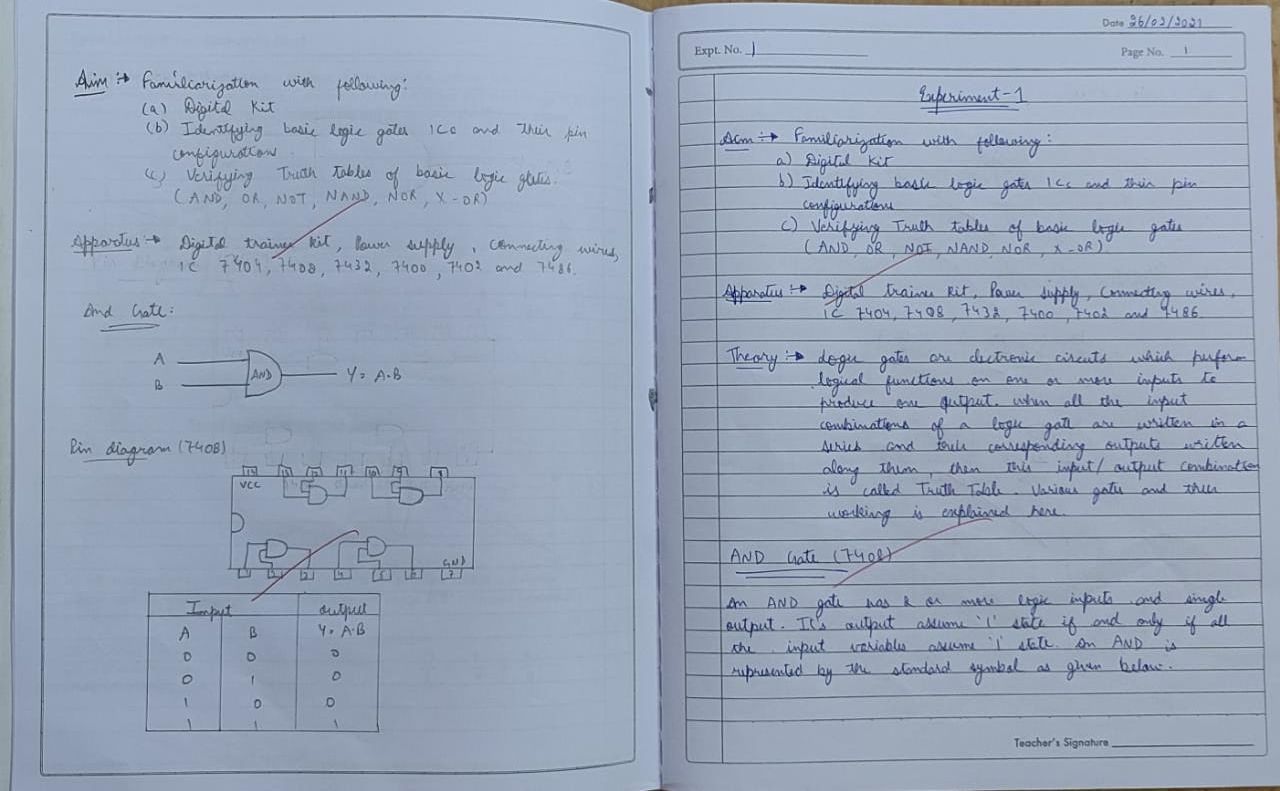 Aim :→ Familiarization with following:
(a) Digital Kit
(b) Identifying basic logic gates ICs and their pin
configurations
(c) Verifying Truth tables of basic logic gates.
(AND, OR, NOT, NAND, NOR, X-OR)
Apparatus :→ Digital trainer kit, Power supply, connecting wires,
IC 7404, 7408, 7432, 7400, 7402 and 7486.
And Gate:
A
B
AND
Y= A.B
Pin diagram (7408)
14 13 12 11 10 9 8
VCC
GND
1 2 3 4 5 6 7
Input output
A B Y= A.B
0 0 0
0 1 0
1 0 0
1 1 1
Date 26/02/2021
Expt. No. 1
Page No. 1
Experiment-1
Aim :→ Familiarization with following:
a) Digital Kit
b) Identifying basic logic gates ICs and their pin
configurations
c) Verifying Truth tables of basic logic gates
(AND, OR, NOT, NAND, NOR, X-OR)
Apparatus :→ Digital trainer Kit, Power supply, Connecting wires,
IC 7404, 7408, 7432, 7400, 7402 and 7486
Theory :→ Logic gates are electronic circuits which perform
logical functions on one or more inputs to
produce one output. when all the input
combinations of a logic gate are written in a
series and their corresponding outputs written
along them, then this input/ output combination
is called Truth Table. Various gates and their
working is explained here.
AND Gate (7408)
An AND gate has 2 or more logic inputs and single
output. It's output assume '1' state if and only if all
the input variables assume '1' state. An AND is
represented by the standard symbol as given below.
Teacher's Signature